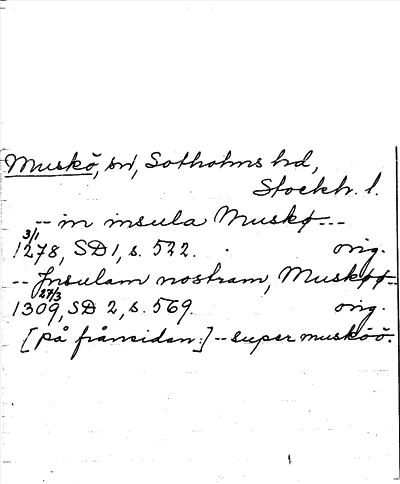 Muskö, sn, Sotholms hd,
Stockh. l.
-- in insula Muskø ---
3/1
1278, SD 1, s. 522. orig.
-- Jnsulam nostram, Muskøø --
27/3
1309, SD 2, s. 569. orig.
[på frånsidan:] -- super musköö.